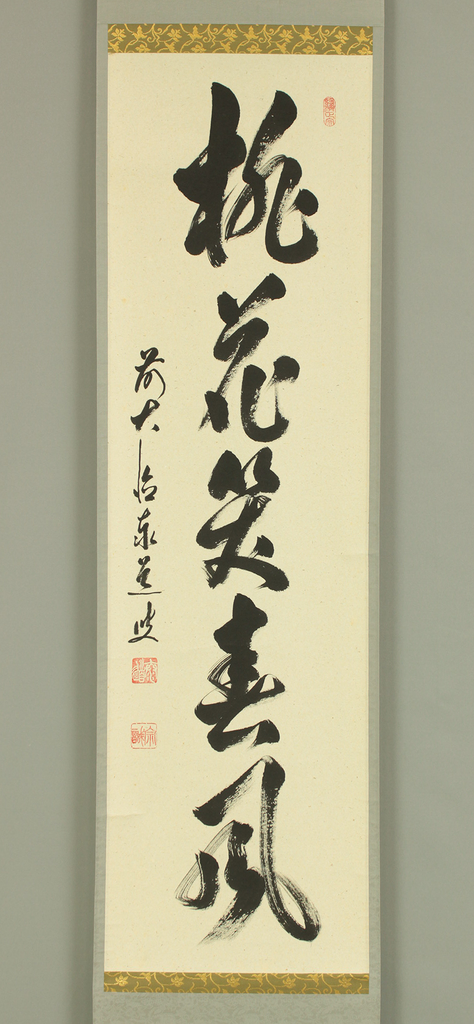 桃花笑春風
前大徳泰道叟